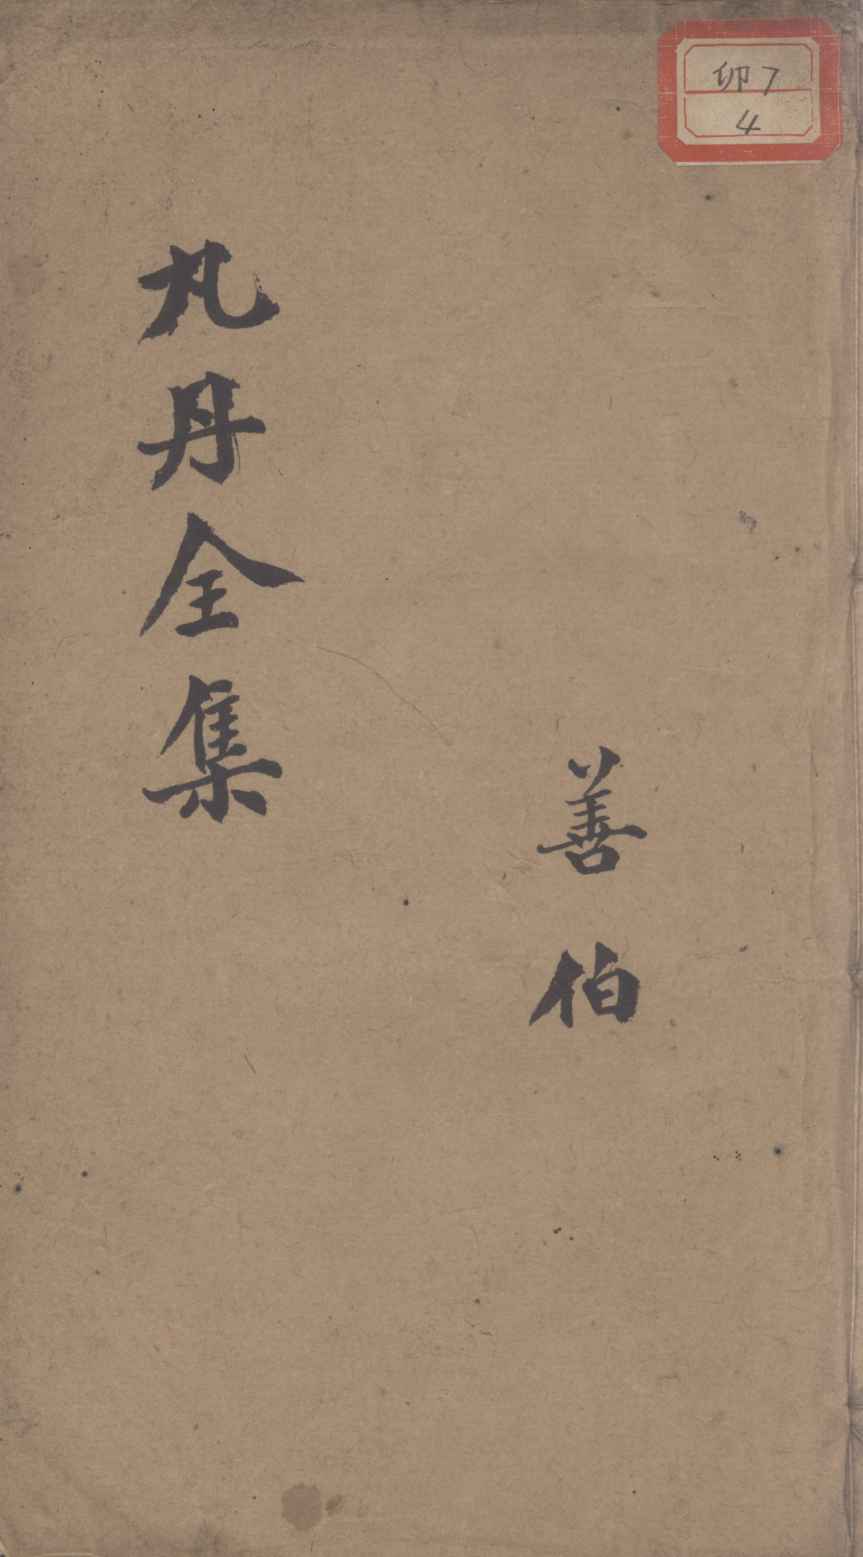 卯7
4
善伯
丸丹全集